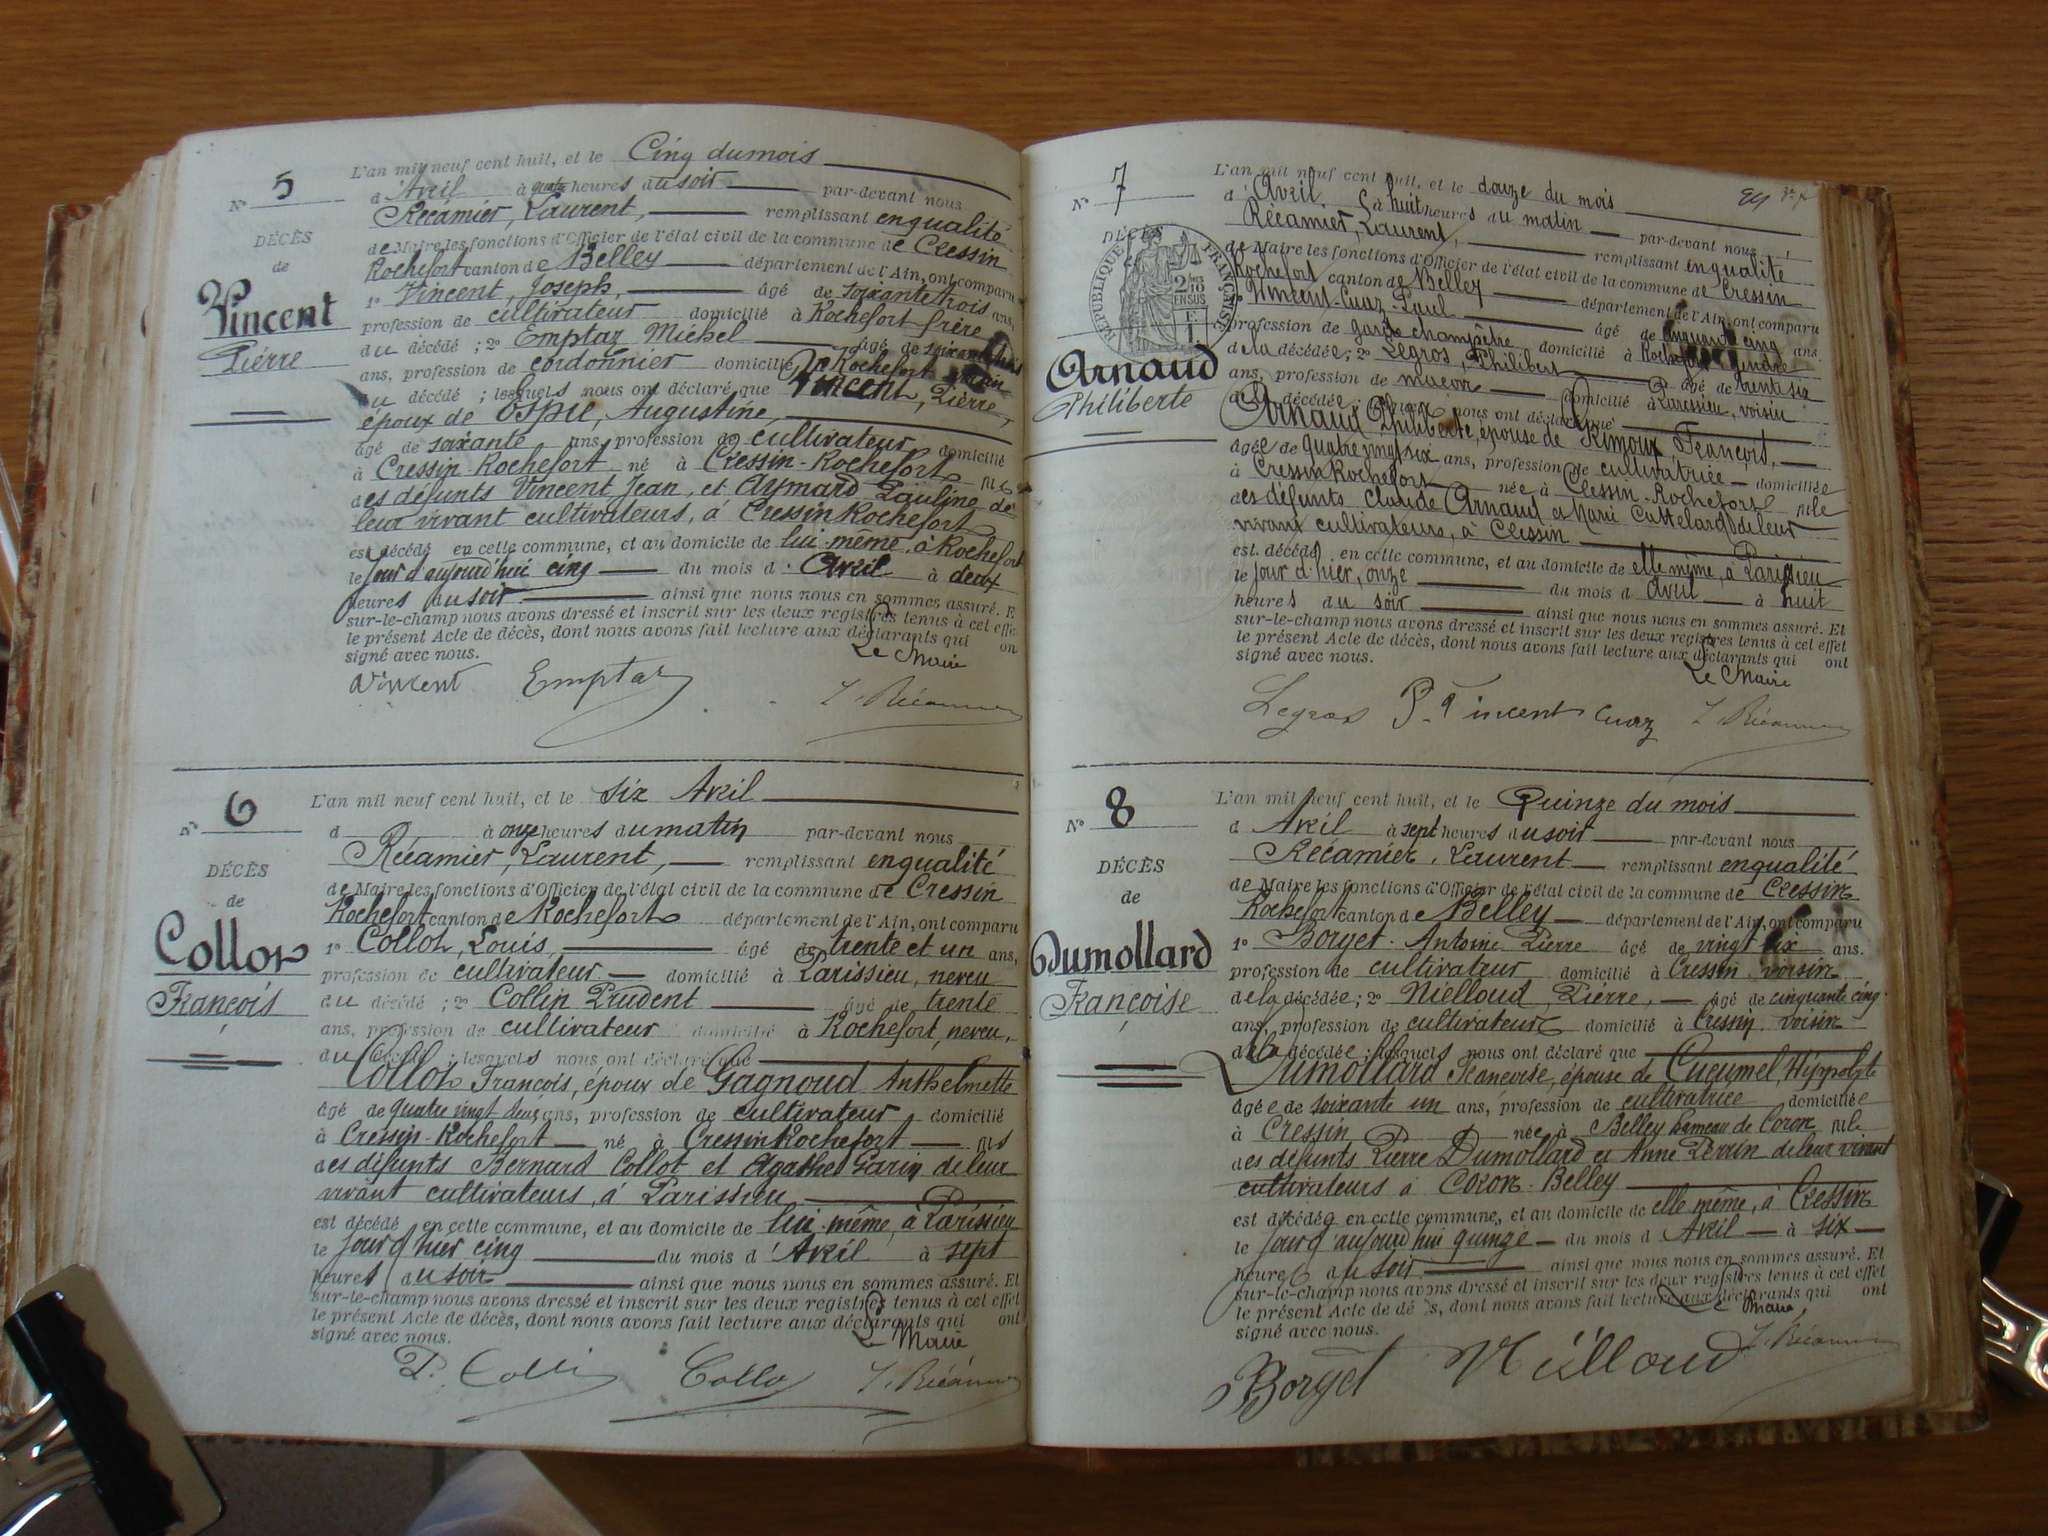 N° 5
DÉCÈS
de
Vincent
Pierre
L'an mil neuf cent huit, et le Cinq du mois
d'Avril à quatre heures du soir par-devant nous
Récamier, Laurent, remplissant en qualité
de Maire les fonctions d'Officier de l'état civil de la commune de Cressin
Rochefort canton de Belley département de l'Ain, ont comparu
1° Vincent, Joseph, âgé de soixante trois ans,
profession de cultivateur domicilié à Rochefort frère
du décédé ; 2° Emptaz Michel âgé de
ans, profession de cordonnier domicilié à Rochefort
du décédé ; lesquels nous ont déclaré que Vincent, Pierre,
époux de Espie, Augustine,
âgé de soixante ans, profession de cultivateur domicilié
à Cressin-Rochefort né à Cressin-Rochefort fils
des défunts Vincent Jean, et Aymard Pauline de
leur vivant cultivateurs, à Cressin Rochefort
est décédé en cette commune, et au domicile de lui-même, à Rochefort
le jour d'aujourd'hui cinq du mois d'Avril à deux
heures du soir ainsi que nous nous en sommes assuré. E
sur-le-champ nous avons dressé et inscrit sur les deux registres tenus à cet effe
le présent Acte de décès, dont nous avons fait lecture aux déclarants qui on
signé avec nous.
Le Maire
Vincent Emptaz L. Récamier
N° 6
DÉCÈS
de
Collot
François
L'an mil neuf cent huit, et le six Avril
d à onze heures du matin par-devant nous
Récamier, Laurent, remplissant en qualité
de Maire les fonctions d'Officier de l'état civil de la commune de Cressin
Rochefort canton de Rochefort département de l'Ain, ont comparu
1° Collot, Louis, âgé de trente et un ans,
profession de cultivateur domicilié à Parissieu, neveu
du décédé ; 2° Collin Prudent âgé de trente
ans, profession de cultivateur domicilié à Rochefort, neveu,
du décédé ; lesquels nous ont déclaré que
Collot François, époux de Gagnoud Anthelmette
âgé de quatre vingt deux ans, profession de cultivateur domicilié
à Cressin-Rochefort né à Cressin Rochefort fils
des défunts Bernard Collot et Agathe Garin de leur
vivant cultivateurs, à Parissieu
est décédé en cette commune, et au domicile de lui-même, à Parissieu
le jour d'hier cinq du mois d'Avril à sept
heures du soir ainsi que nous nous en sommes assuré. Et
sur-le-champ nous avons dressé et inscrit sur les deux registres tenus à cet effet
le présent Acte de décès, dont nous avons fait lecture aux déclarants qui ont
signé avec nous.
Le Maire
P. Collin Collot L. Récamier
N° 7
DÉCÈS
RÉPUBLIQUE FRANÇAISE
2/10
EN SUS
Arnaud
Philiberte
L'an mil neuf cent huit, et le douze du mois
d'Avril à huit heures du matin par-devant nous
Récamier, Laurent, remplissant en qualité
de Maire les fonctions d'Officier de l'état civil de la commune de Cressin
Rochefort canton de Belley département de l'Ain, ont comparu
Vincent-Cuaz Paul âgé de cinquante cinq ans.
profession de garde champêtre domicilié à Rochefort gendre
de la décédée ; 2° Legros, Philibert âgé de trente six
ans, profession de maçon domicilié à Parissieu, voisin
de la décédée ; lesquels nous ont déclaré que
Arnaud Philiberte, épouse de Rimoux, François,
âgée de quatre vingt six ans, profession de cultivatrice domiciliée
à Cressin Rochefort née à Cressin-Rochefort fille
des défunts Claude Arnaud et Marie Cattelard de leur
vivant cultivateurs, à Cressin
est décédé en cette commune, et au domicile de elle même, à Parissieu
le jour d'hier, onze du mois d Avril à huit
heures du soir ainsi que nous nous en sommes assuré. Et
sur-le-champ nous avons dressé et inscrit sur les deux registres tenus à cet effet
le présent Acte de décès, dont nous avons fait lecture aux déclarants qui ont
signé avec nous.
Le Maire
Legros P. Vincent Cuaz L. Récamier
N° 8
DÉCÈS
de
Dumollard
Françoise
L'an mil neuf cent huit, et le Quinze du mois
d Avril à sept heures du soir par-devant nous
Récamier, Laurent remplissant en qualité
de Maire les fonctions d'Officier de l'état civil de la commune de Cressin
Rochefort canton de Belley département de l'Ain, ont comparu
1° Borget Antoine Pierre âgé de vingt six ans.
profession de cultivateur domicilié à Cressin voisin
de la décédée ; 2° Nielloud Pierre, âgé de cinquante cinq
ans, profession de cultivateur domicilié à Cressin, voisin
de la décédée ; lesquels nous ont déclaré que
Dumollard Françoise, épouse de Cucumel, Hippolyte
âgée de soixante un ans, profession de cultivatrice domiciliée
à Cressin née à Belley hameau de Coron fille
des défunts Pierre Dumollard et Anne Perrin de leur vivant
cultivateurs à Coron-Belley
est décédée en cette commune, et au domicile de elle même, à Cressin
le jour d'aujourd'hui quinze du mois d Avril à six
heures du soir ainsi que nous nous en sommes assuré. Et
sur-le-champ nous avons dressé et inscrit sur les deux registres tenus à cet effet
le présent Acte de décès, dont nous avons fait lecture aux déclarants qui ont
signé avec nous.
Le Maire,
Borget Nielloud L. Récamier